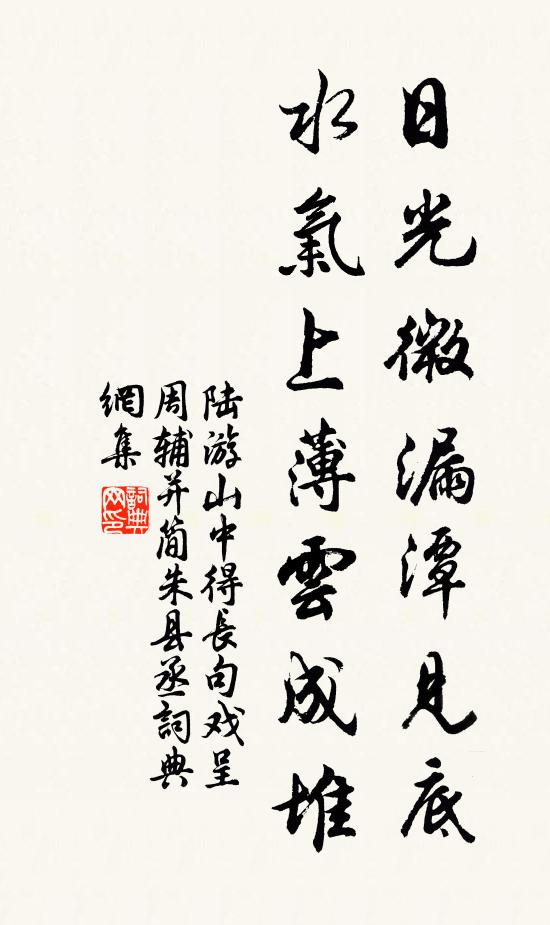 日光微漏潭見底
水氣上薄雲成堆
陆游山中得長句戏呈
周辅并简朱县丞詞典
網集
詞典
网印